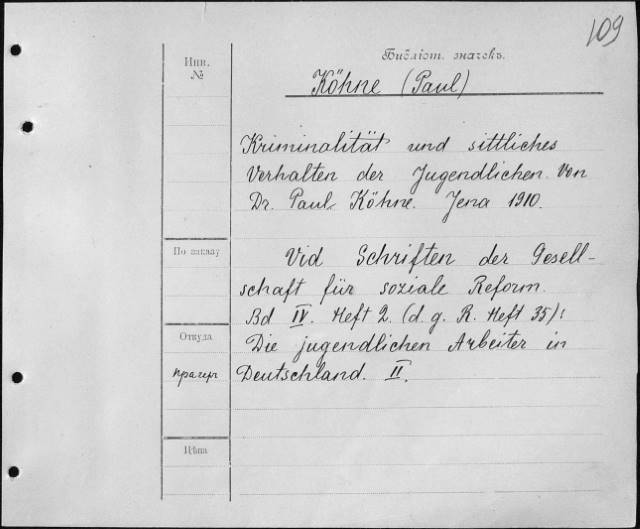 109
Инв.
№
Библіот. значекъ.
Köhne (Paul)
Kriminalität und sittliches
Verhalten der Jugendlichen. Von
Dr. Paul Köhne. Jena 1910.
По заказу
Vid Schriften der Gesell-
schaft für soziale Reform.
Bd IV. Heft 2. (d. g. R. Heft 35):
Откуда
Die jugendlichen Arbeiter in
Прагеръ
Deutschland. II.
Цѣна